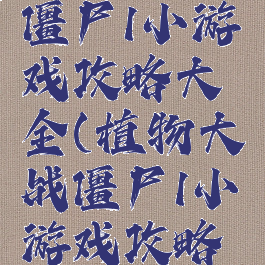 僵尸1小游
戏攻略大
全(植物大
战僵尸1小
游戏攻略